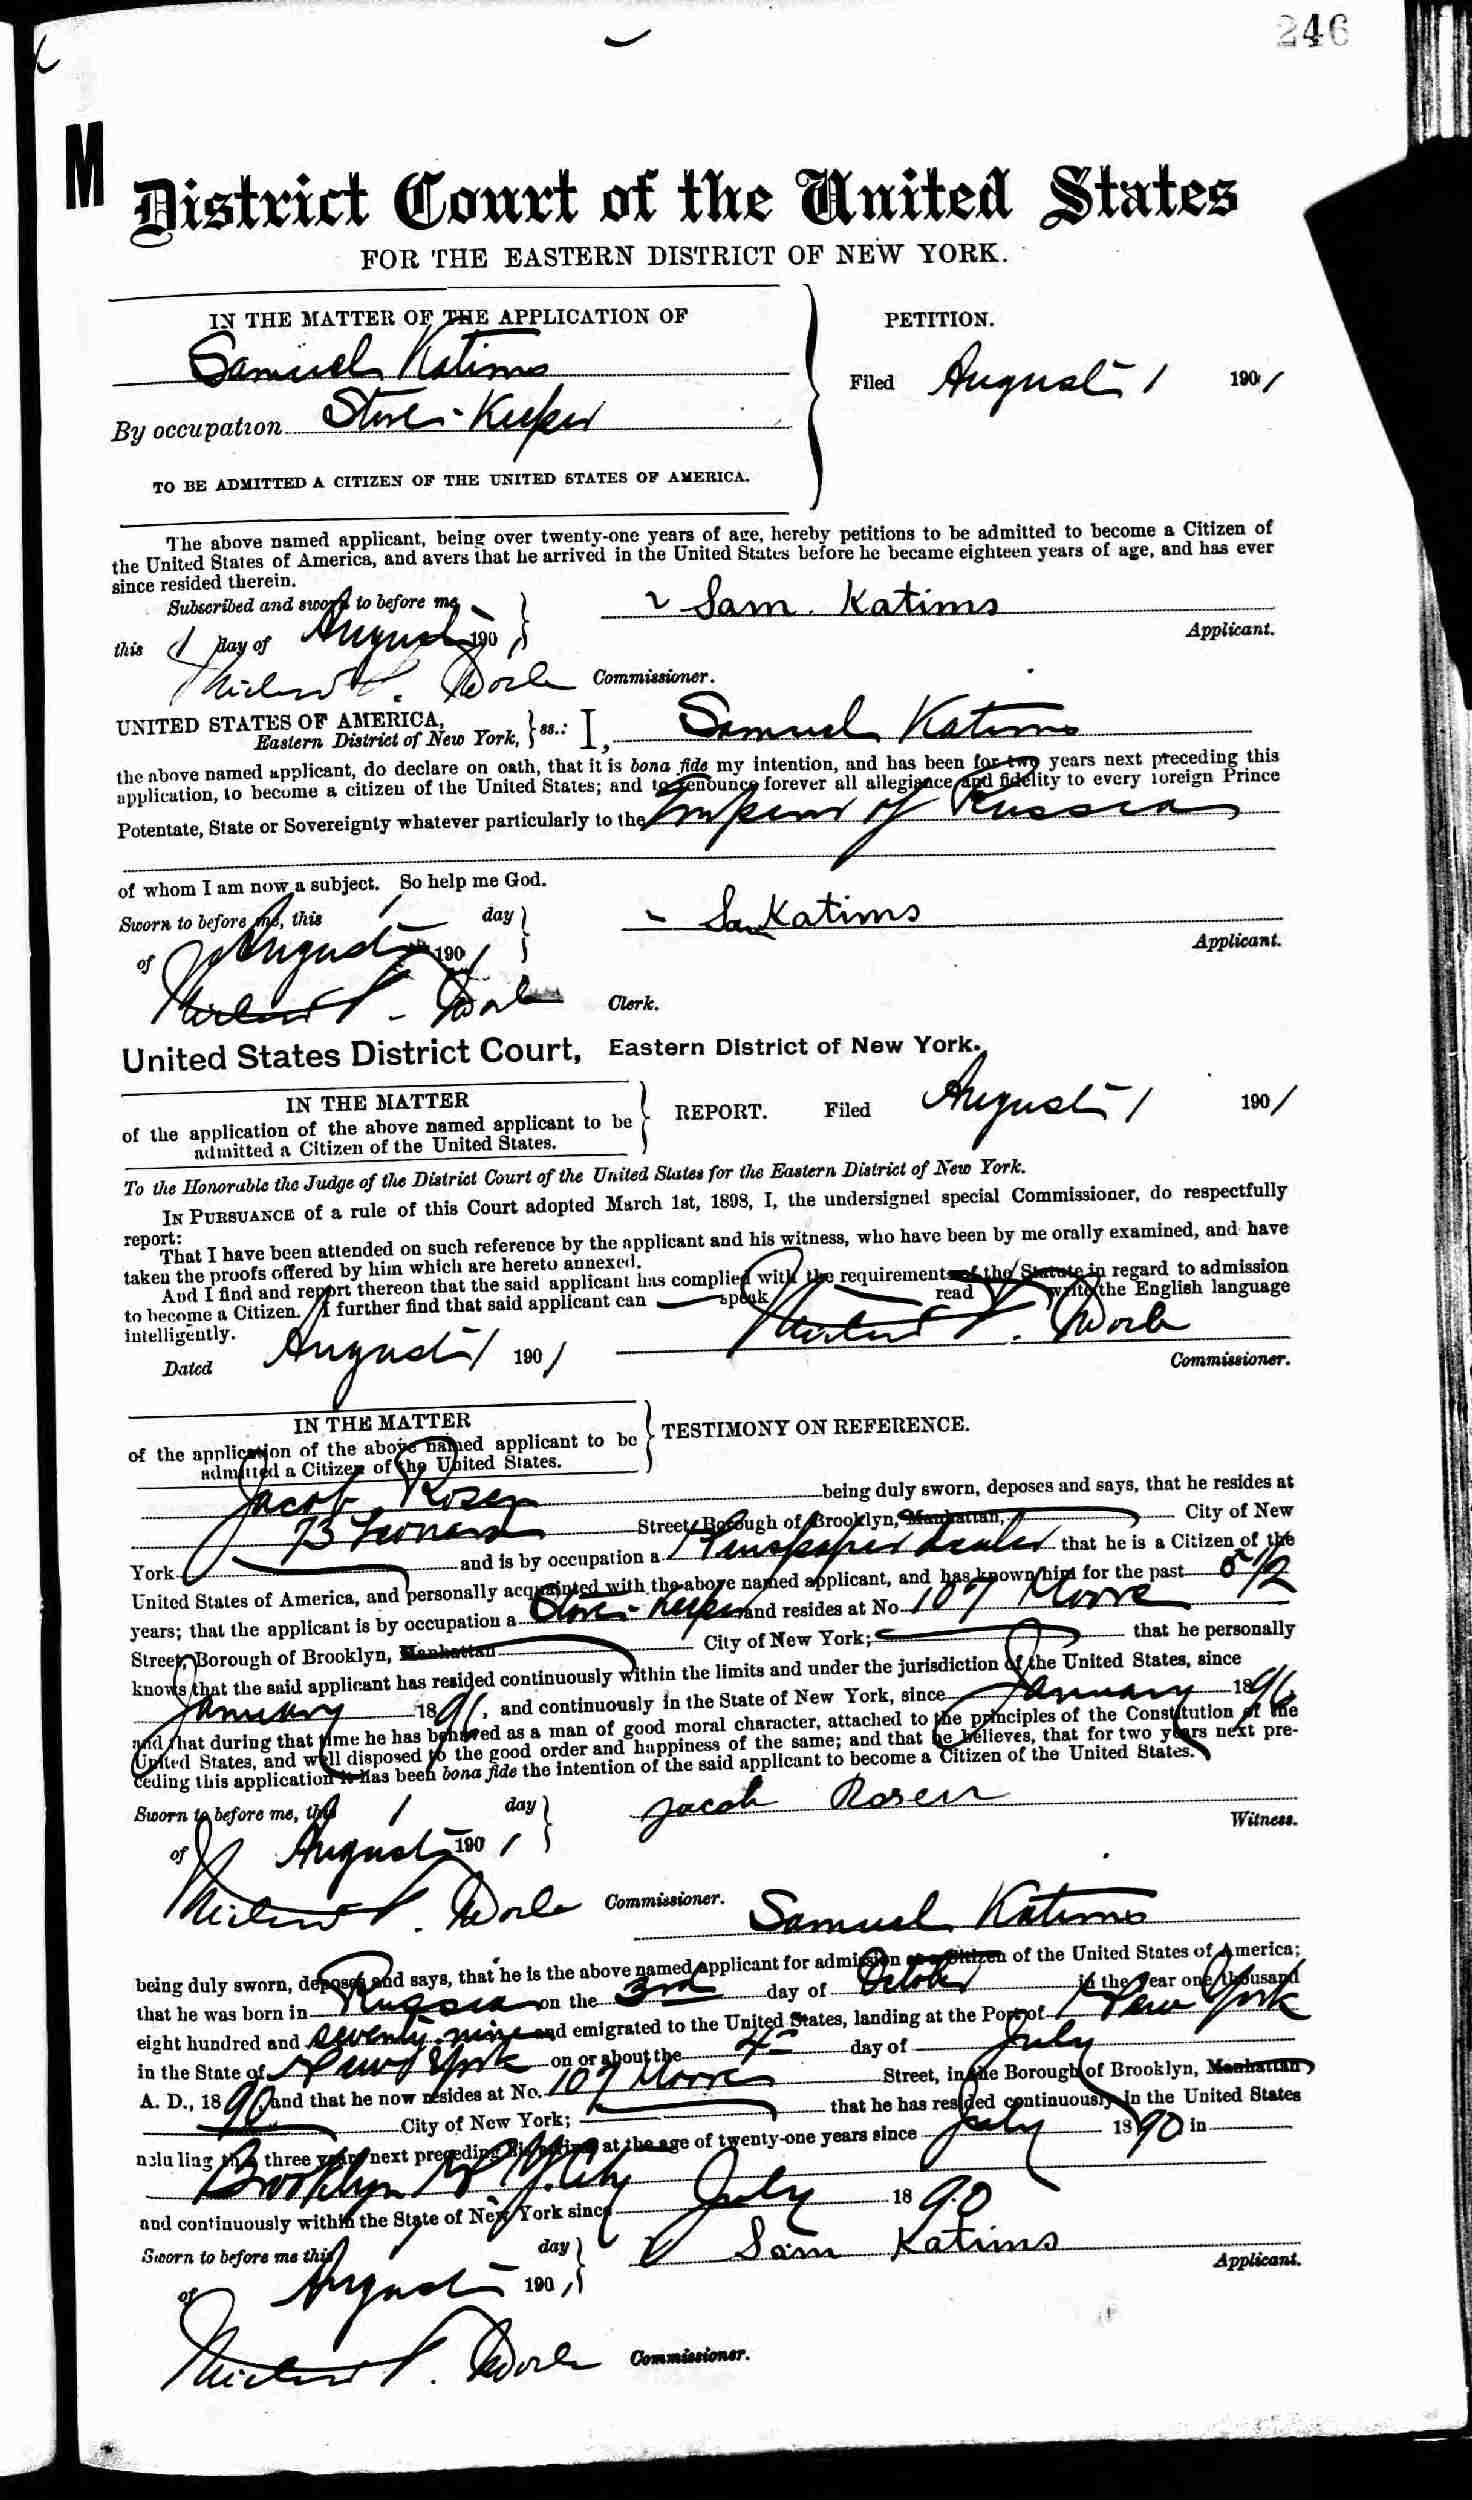 246
M
District Court of the United States
FOR THE EASTERN DISTRICT OF NEW YORK.
IN THE MATTER OF THE APPLICATION OF
Samuel Katims
By occupation Store-Keeper
TO BE ADMITTED A CITIZEN OF THE UNITED STATES OF AMERICA.
PETITION.
Filed August 1 1901
The above named applicant, being over twenty-one years of age, hereby petitions to be admitted to become a Citizen of
the United States of America, and avers that he arrived in the United States before he became eighteen years of age, and has ever
since resided therein.
Subscribed and sworn to before me
this 1 day of August 1901
Sam. Katims
Applicant.
Commissioner.
UNITED STATES OF AMERICA,
Eastern District of New York, ss.: I, Samuel Katims
the above named applicant, do declare on oath, that it is bona fide my intention, and has been for two years next preceding this
application, to become a citizen of the United States; and to renounce forever all allegiance and fidelity to every foreign Prince
Potentate, State or Sovereignty whatever particularly to the Emperor of Russia
of whom I am now a subject. So help me God.
Sworn to before me, this 1 day
of August 1901
Sam Katims
Applicant.
Clerk.
United States District Court, Eastern District of New York.
IN THE MATTER
of the application of the above named applicant to be
admitted a Citizen of the United States.
REPORT. Filed August 1 1901
To the Honorable the Judge of the District Court of the United States for the Eastern District of New York.
IN PURSUANCE of a rule of this Court adopted March 1st, 1898, I, the undersigned special Commissioner, do respectfully
report:
That I have been attended on such reference by the applicant and his witness, who have been by me orally examined, and have
taken the proofs offered by him which are hereto annexed.
And I find and report thereon that the said applicant has complied with the requirements of the Statute in regard to admission
to become a Citizen. I further find that said applicant can speak read write the English language
intelligently.
Dated August 1 1901
Commissioner.
IN THE MATTER
of the application of the above named applicant to be
admitted a Citizen of the United States.
TESTIMONY ON REFERENCE.
Jacob Rosen being duly sworn, deposes and says, that he resides at
73 Leonard Street, Borough of Brooklyn, Manhattan, City of New
York and is by occupation a Newspaper dealer that he is a Citizen of the
United States of America, and personally acquainted with the above named applicant, and has known him for the past 5 1/2
years; that the applicant is by occupation a Store-Keeper and resides at No. 107 Moore
Street, Borough of Brooklyn, Manhattan City of New York; that he personally
knows that the said applicant has resided continuously within the limits and under the jurisdiction of the United States, since
January 1896, and continuously in the State of New York, since January 1896,
and that during that time he has behaved as a man of good moral character, attached to the principles of the Constitution of the
United States, and well disposed to the good order and happiness of the same; and that he believes, that for two years next pre-
ceding this application it has been bona fide the intention of the said applicant to become a Citizen of the United States.
Sworn to before me, this 1 day
of August 1901
Jacob Rosen
Witness.
Commissioner.
Samuel Katims
being duly sworn, deposes and says, that he is the above named applicant for admission as a Citizen of the United States of America;
that he was born in Russia on the 3rd day of October in the year one thousand
eight hundred and seventy-nine and emigrated to the United States, landing at the Port of New York
in the State of New York on or about the 4th day of July
A. D., 1890, and that he now resides at No. 107 Moore Street, in the Borough of Brooklyn, Manhattan
City of New York; that he has resided continuously in the United States
ncluding the three years next preceding his arrival at the age of twenty-one years since July 1890 in
Brooklyn N. Y. City
and continuously within the State of New York since July 1890
Sworn to before me this day
of August 1901
Sam Katims
Applicant.
Commissioner.